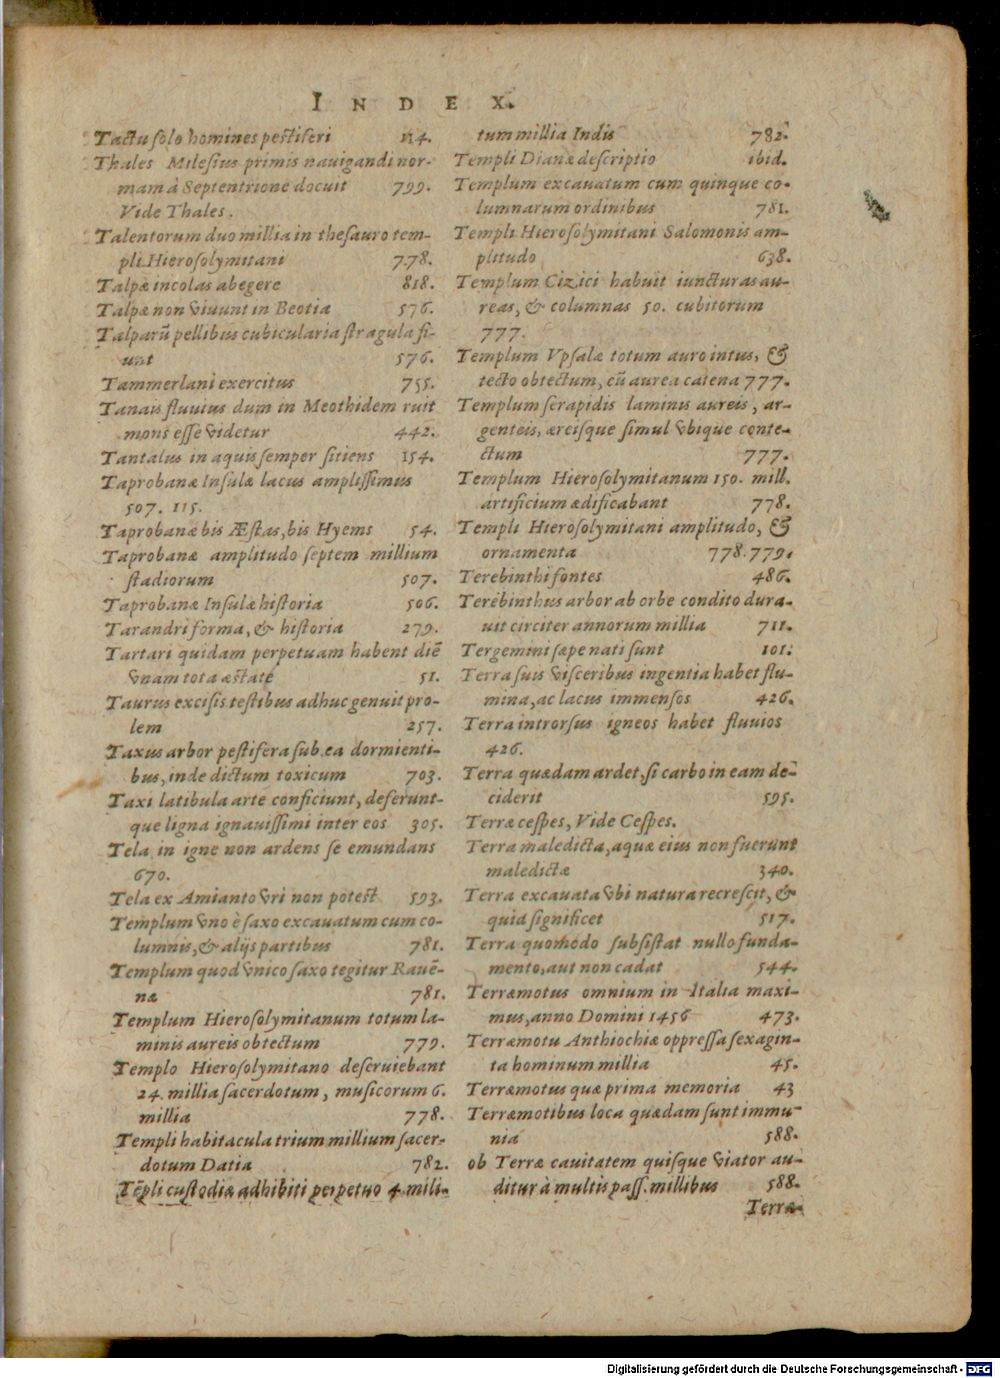 INDEX.
Tactu solo homines pestiferi 114.
Thales Milesius primis nauigandi nor-
mam à Septentrione docuit 799.
Vide Thales.
Talentorum duo millia in thesauro tem-
pli Hierosolymitani 778.
Talpæ incolas abegere 818.
Talpæ non viuunt in Beotia 576.
Talparũ pellibus cubicularia stragula fi-
unt 576.
Tammerlani exercitus 755.
Tanais fluuius dum in Meothidem ruit
mons esse videtur 442.
Tantalus in aquis semper sitiens 154.
Taprobanæ Insulæ lacus amplissimus
507. 115.
Taprobanæ bis Æstas, bis Hyems 54.
Taprobanæ amplitudo septem millium
stadiorum 507.
Taprobanæ Insulæ historia 506.
Tarandri forma, & historia 279.
Tartari quidam perpetuam habent diẽ
vnam tota æstate 51.
Taurus excisis testibus adhuc genuit pro-
lem 257.
Taxus arbor pestifera sub ea dormienti-
bus, inde dictum toxicum 703.
Taxi latibula arte conficiunt, deferunt-
que ligna ignauissimi inter eos 305.
Tela in igne non ardens se emundans
670.
Tela ex Amianto vri non potest 593.
Templum vno è saxo excauatum cum co-
lumnis, & alijs partibus 781.
Templum quod vnico saxo tegitur Rauẽ-
næ 781.
Templum Hierosolymitanum totum la-
minis aureis obtectum 779.
Templo Hierosolymitano deseruiebant
24. millia sacerdotum, musicorum 6.
millia 778.
Templi habitacula trium millium sacer-
dotum Datia 782.
Tẽpli custodiæ adhibiti perpetuo 4. mili-
tum millia Indis 782.
Templi Dianæ descriptio ibid.
Templum excauatum cum quinque co-
lumnarum ordinibus 781.
Templi Hierosolymitani Salomonis am-
plitudo 638.
Templum Cizici habuit iuncturas au-
reas, & columnas 50. cubitorum
777.
Templum Vpsalæ totum auro intus, &
tecto obtectum, cũ aurea catena 777.
Templum serapidis laminis aureis, ar-
genteis, æreisque simul vbique conte-
ctum 777.
Templum Hierosolymitanum 150. mill.
artificium ædificabant 778.
Templi Hierosolymitani amplitudo, &
ornamenta 778. 779.
Terebinthi fontes 486.
Terebinthus arbor ab orbe condito dura-
uit circiter annorum millia 711.
Tergemini sæpe nati sunt 101.
Terra suis visceribus ingentia habet flu-
mina, ac lacus immensos 426.
Terra introrsus igneos habet fluuios
426.
Terra quædam ardet, si carbo in eam de-
ciderit 595.
Terræ cespes, Vide Cespes.
Terra maledicta, aquæ eius non fuerunt
maledictæ 340.
Terra excauata vbi natura recrescit, &
quid significet 517.
Terra quomodo subsistat nullo funda-
mento, aut non cadat 544.
Terræmotus omnium in Italia maxi-
mus, anno Domini 1456 473.
Terræmotu Anthiochiæ oppressa sexagin-
ta hominum millia 45.
Terræmotus quæ prima memoria 43
Terræmotibus loca quædam sunt immu-
nia 588.
ob Terræ cauitatem quisque viator au-
ditur à multis pass. millibus 588.
Terræ-
Digitalisierung gefördert durch die Deutsche Forschungsgemeinschaft - DFG